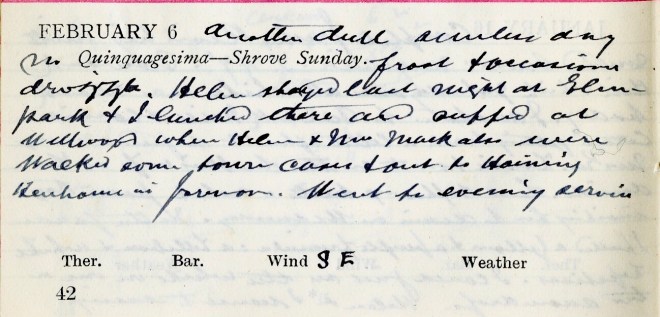 FEBRUARY 6 Another dull sunless day
no Quinquagesima—Shrove Sunday. frost & occasion
drizzle. Helen stayed last night at Elm-
park & I lunched there and supped at
Wellwood when Helen & Mrs Mack also were
Walked some town cases & out to Haining
in forenoon. Went to evening service
Ther. Bar. Wind S E Weather
42